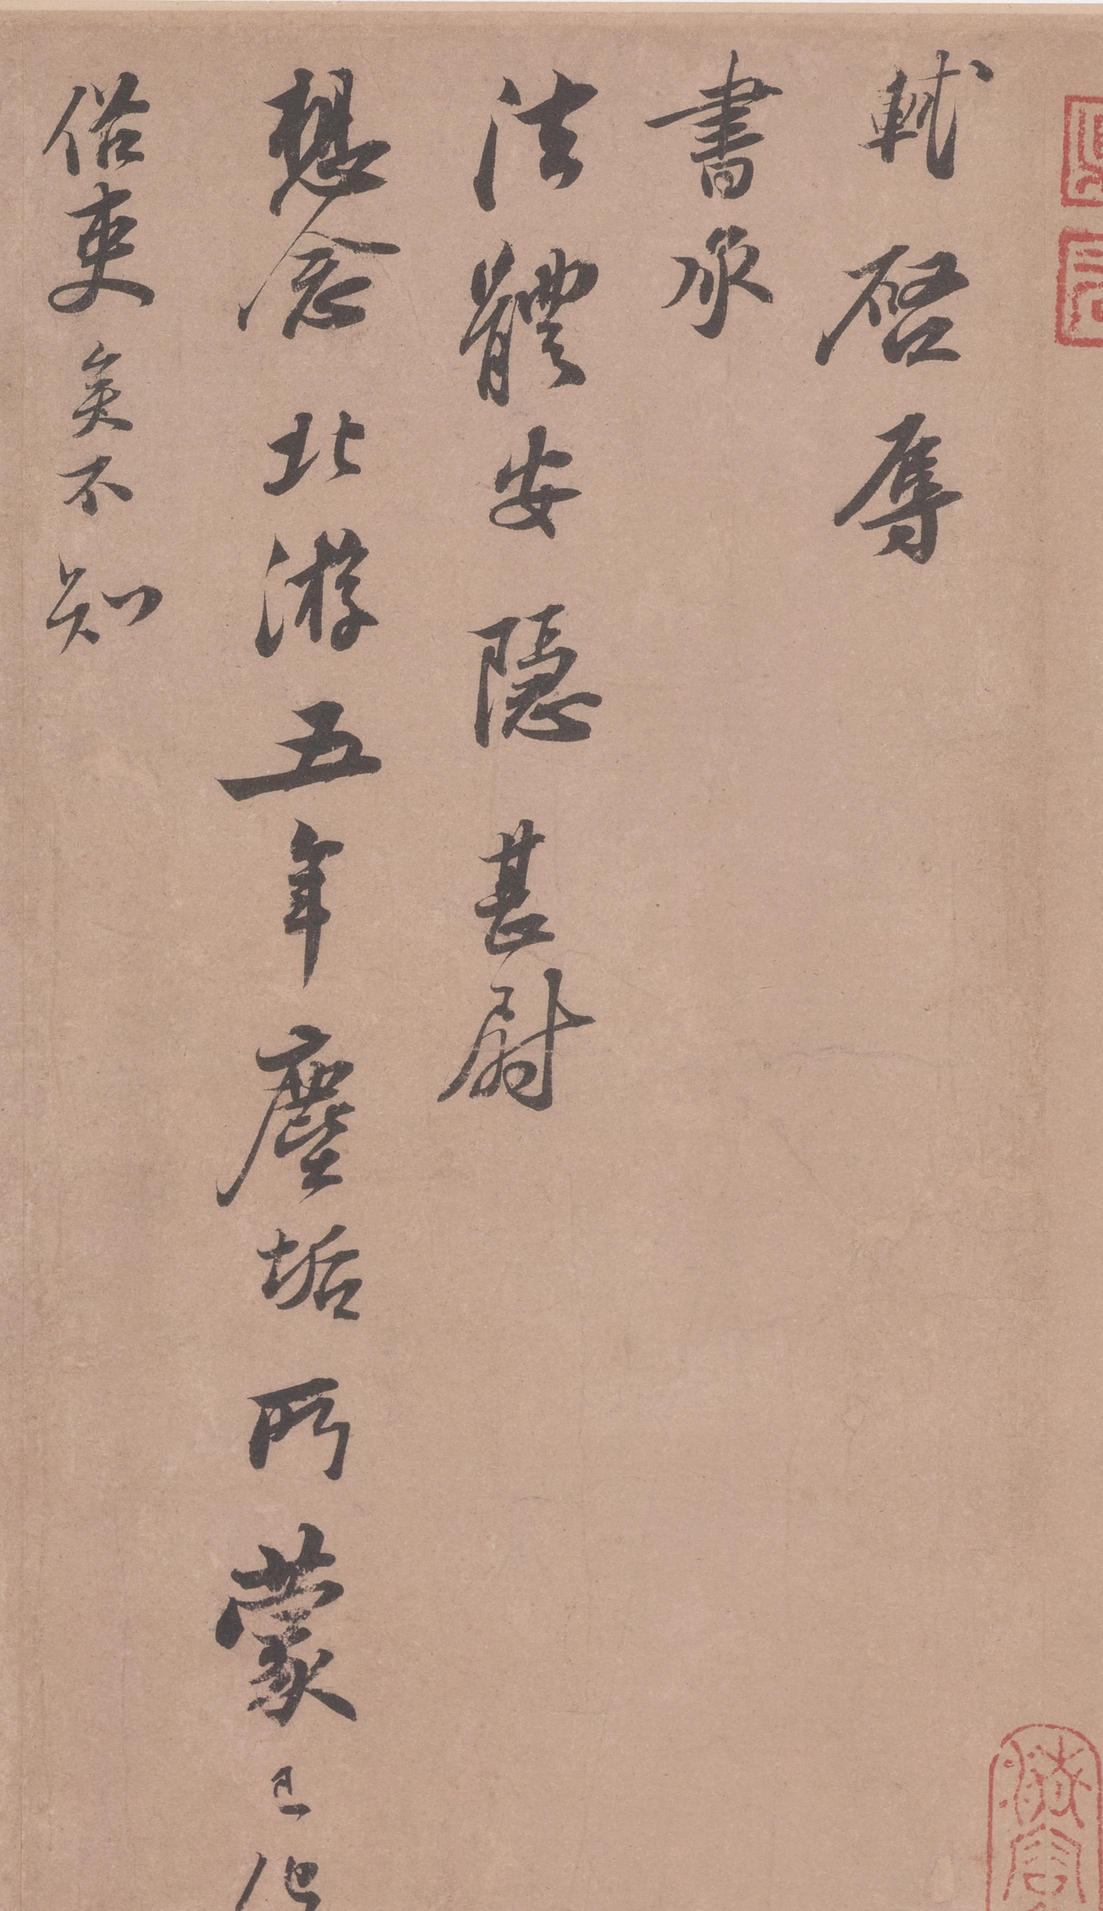 軾啓辱
書承
法體安隱甚尉
想念北游五年塵垢所蒙已化
俗吏矣不知